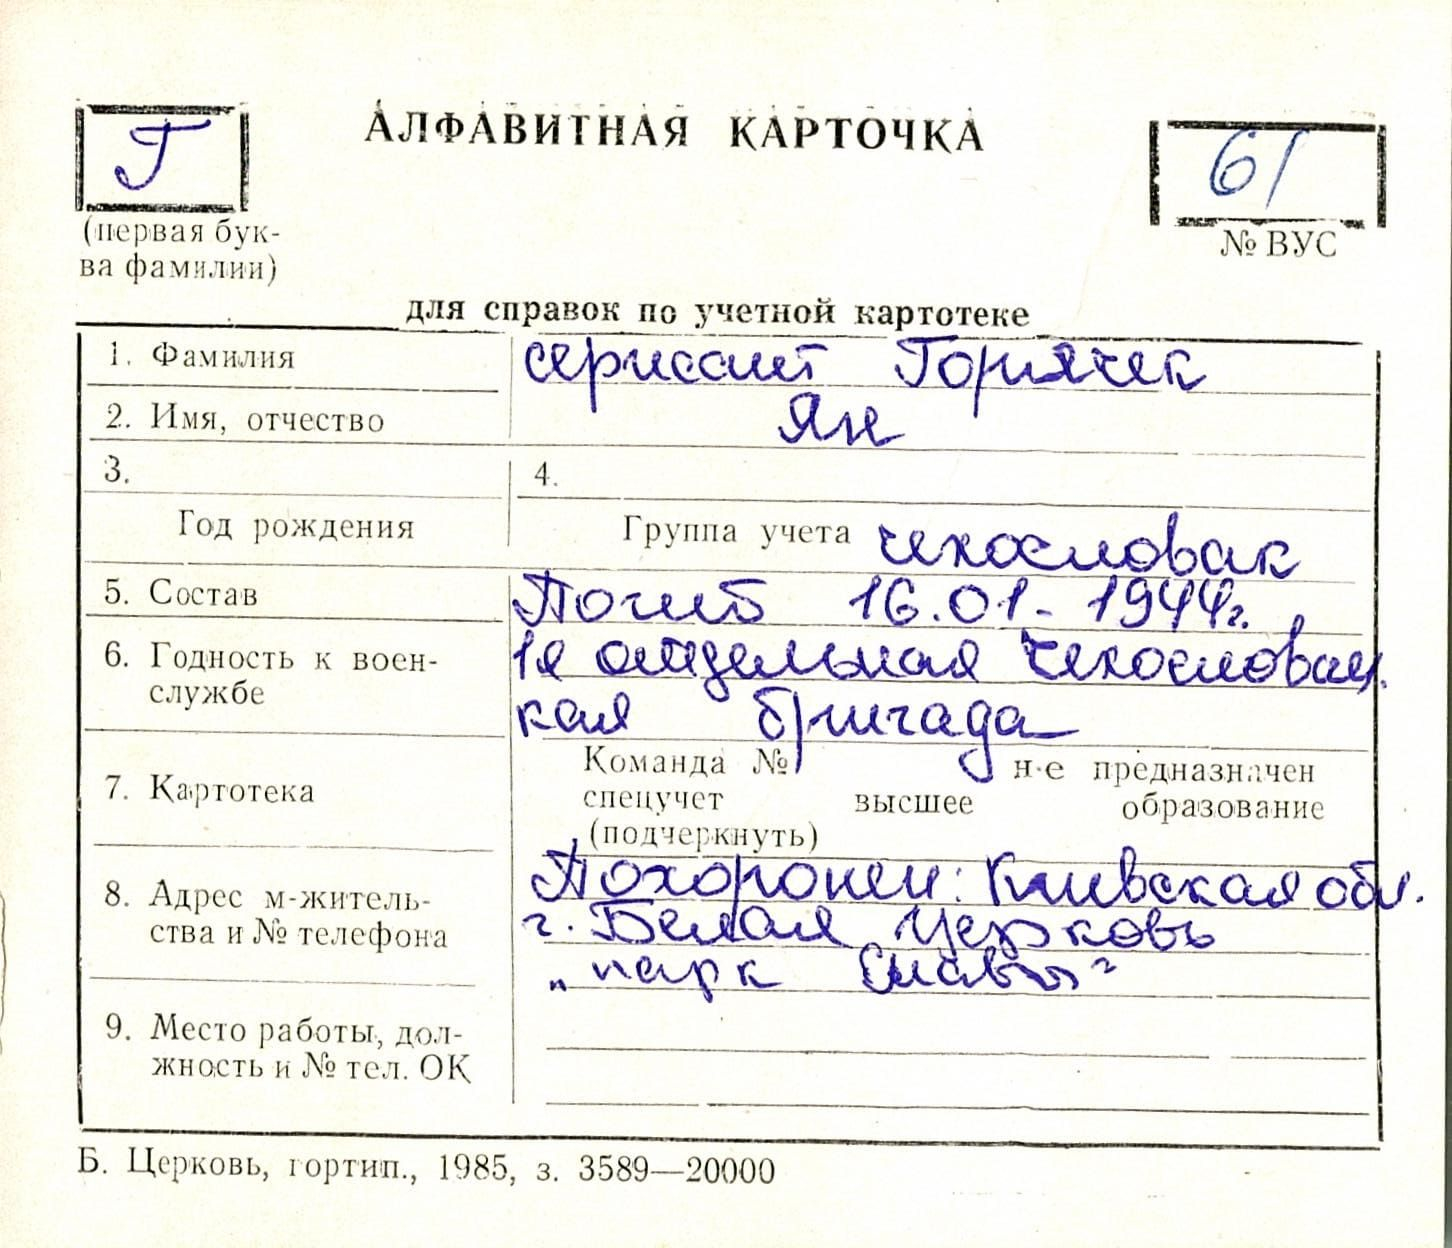 АЛФАВИТНАЯ КАРТОЧКА
Г
61
(первая бук-
ва фамилии)
№ ВУС
для справок по учетной картотеке
1. Фамилия сержант Горячек
2. Имя, отчество Ян
3. 4.
Год рождения Группа учета чехословак
5. Состав Погиб 16.01-1944г.
6. Годность к воен- 1я отдельная Чехословац.
службе кая бригада
Команда № н-е предназначен
7. Картотека спецучет высшее образование
(подчеркнуть)
8. Адрес м-житель- Похоронен: Киевская обл.
ства и № телефона г. Белая Церковь
„парк Славы"
9. Место работы, дол-
жность и № тел. ОК
Б. Церковь, гортип., 1985, з. 3589—20000